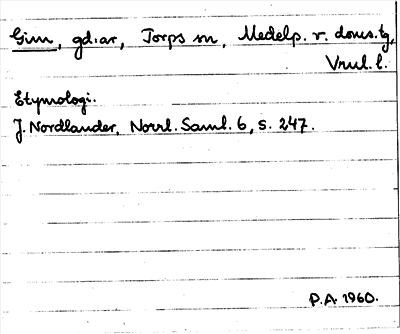 Gim, gdar, Torps sn, Medelp. v. doms.tg,
Vnl. l.
Etymologi.
J. Nordlander, Norrl. Saml. 6, s. 247.
P.A. 1960.